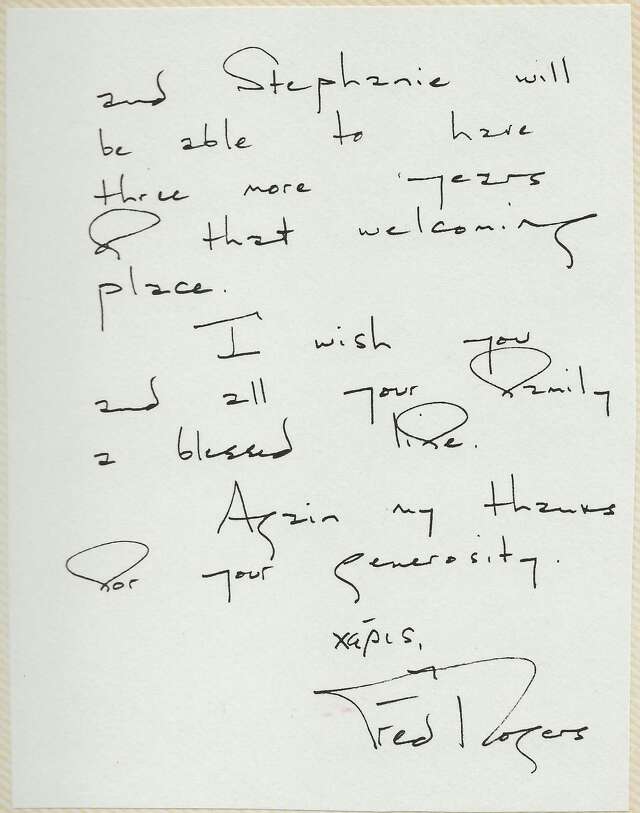 and Stephanie will
be able to have
three more years
of that welcoming
place.
I wish you
and all your family
a blessed life.
Again my thanks
for your generosity.
χάρις,
Fred Rogers